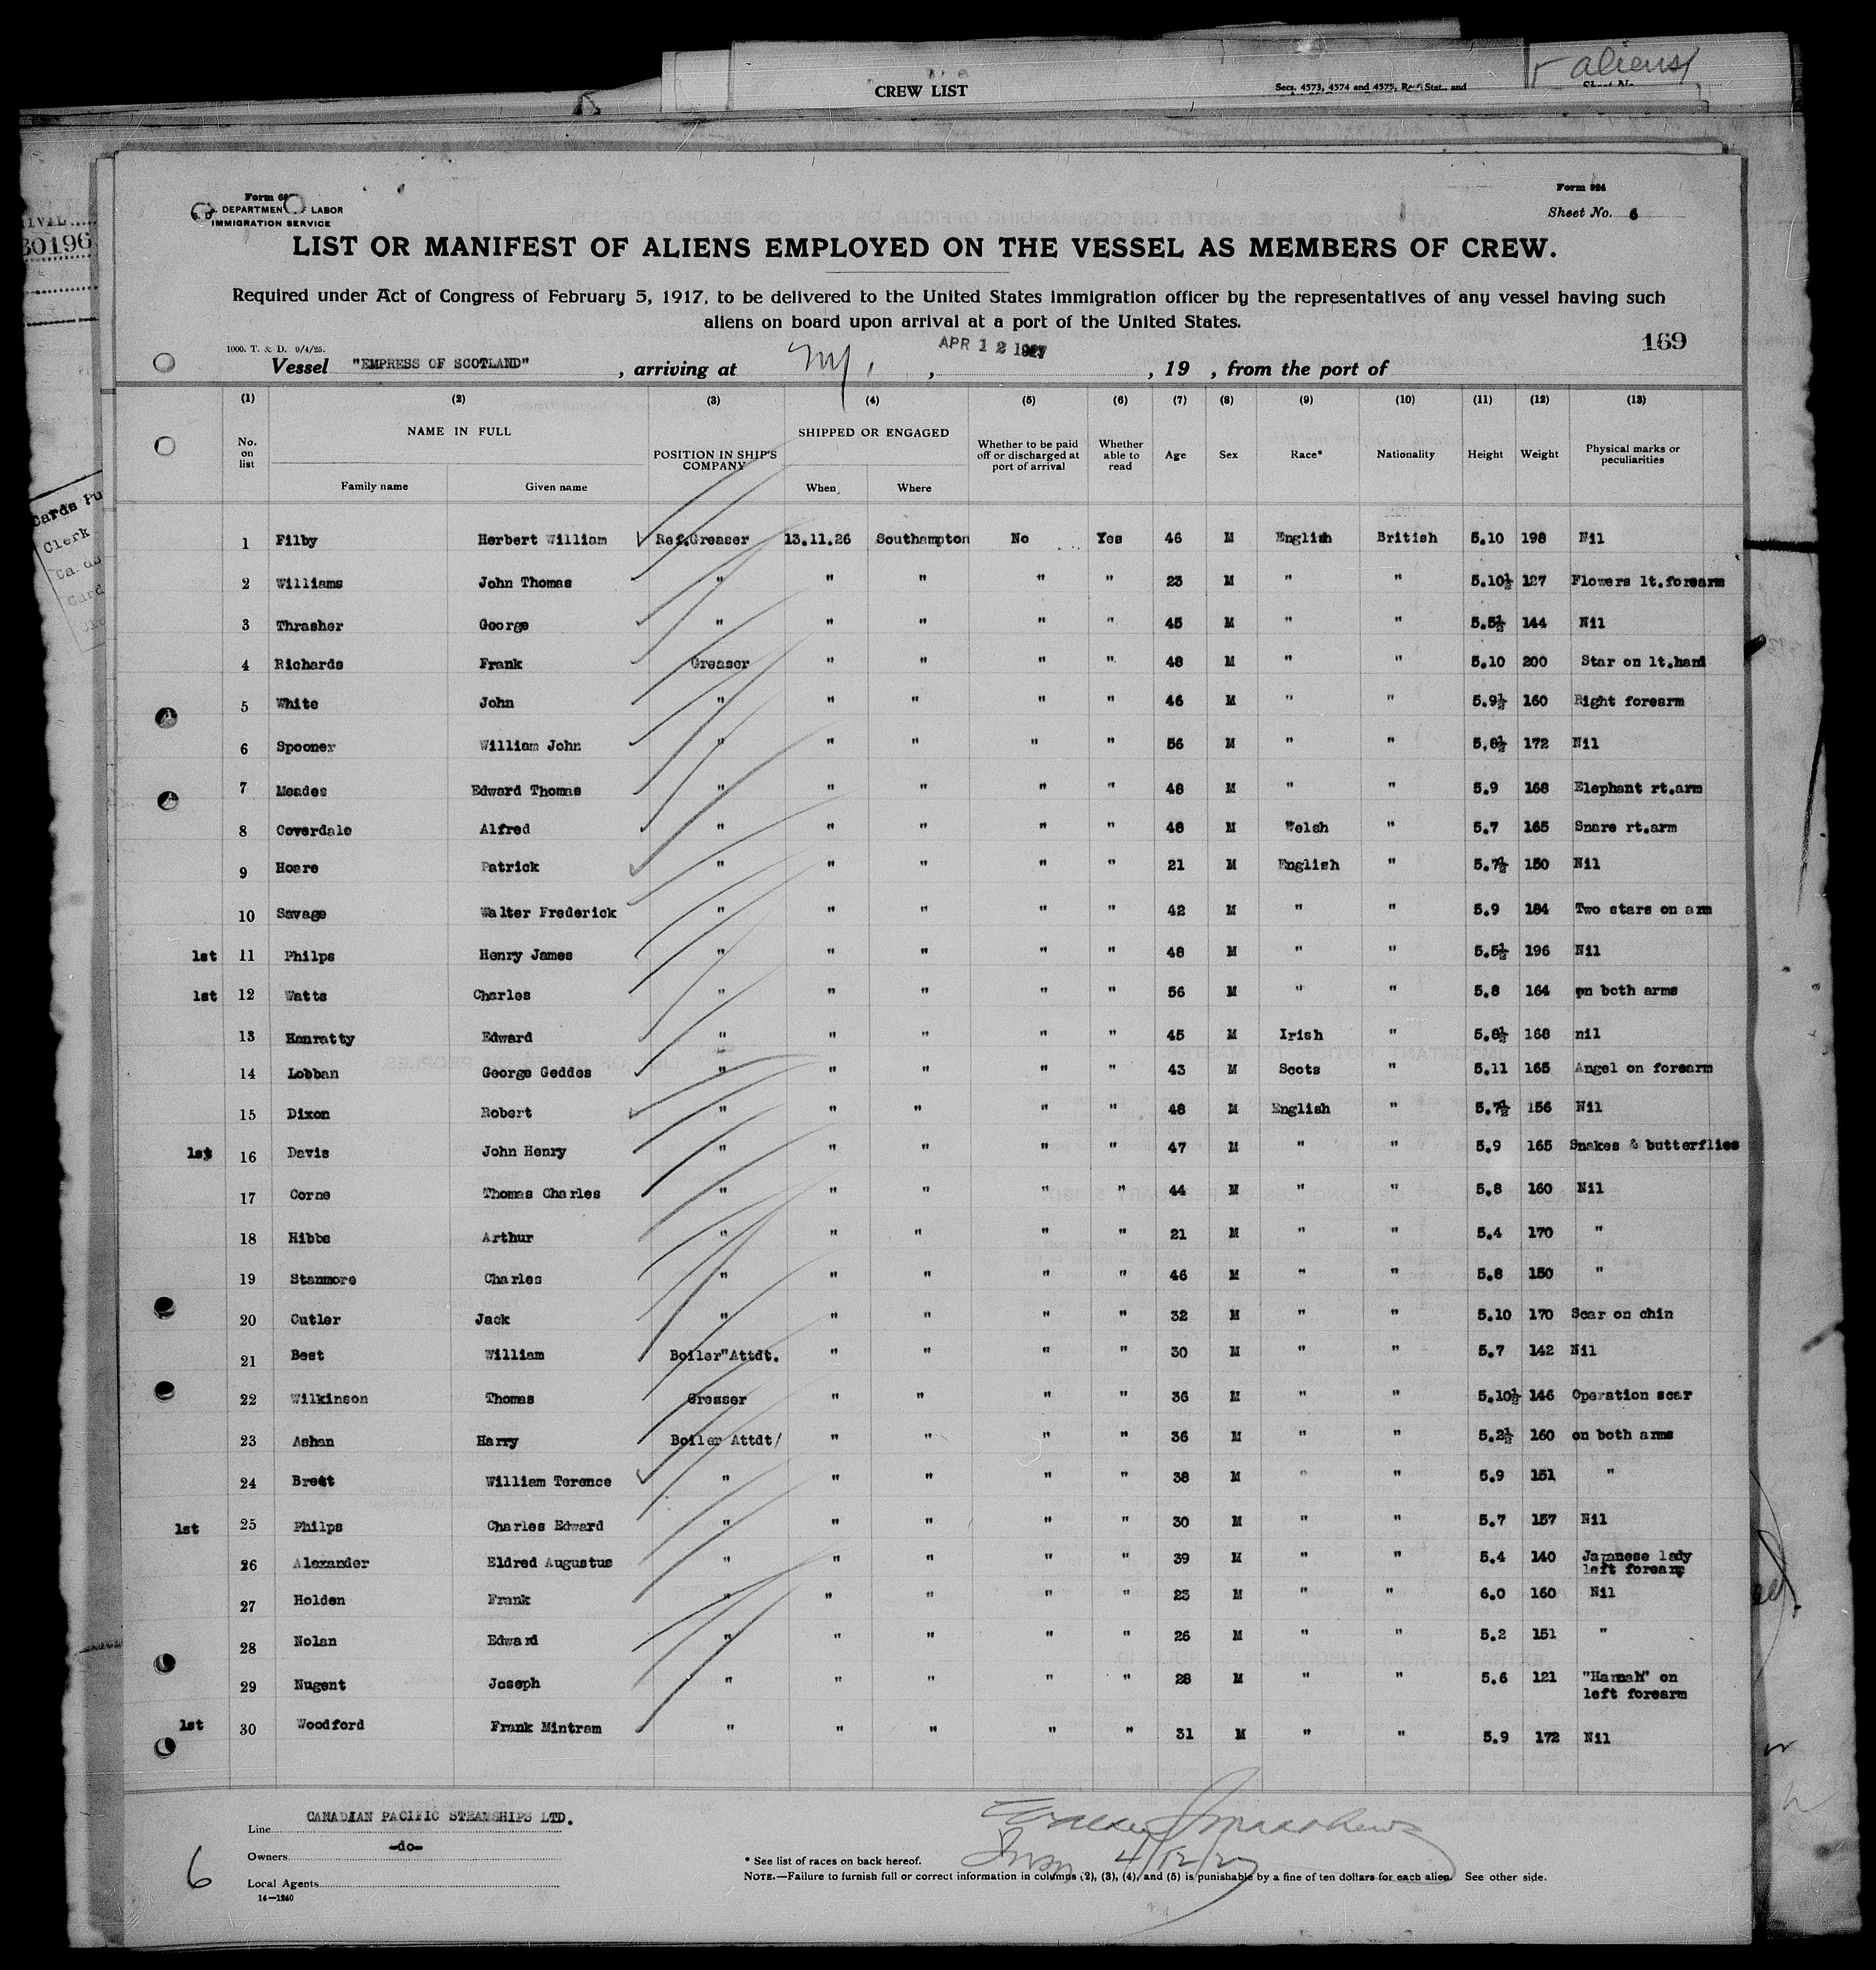 CREW LIST
Secs. 4573, 4574 and 4575, Rev. Stat., and
aliens
Sheet No.
Form 924
Sheet No. 6
DEPARTMENT OF LABOR
IMMIGRATION SERVICE
30196
LIST OR MANIFEST OF ALIENS EMPLOYED ON THE VESSEL AS MEMBERS OF CREW.
Required under Act of Congress of February 5, 1917, to be delivered to the United States immigration officer by the representatives of any vessel having such
aliens on board upon arrival at a port of the United States.
169
1000. T. & D. 9/4/25.
APR 12 1927
Vessel "EMPRESS OF SCOTLAND" , arriving at NY, , , 19 , from the port of
(1) (2) (3) (4) (5) (6) (7) (8) (9) (10) (11) (12) (13)
No. on list NAME IN FULL Family name Given name POSITION IN SHIP'S COMPANY SHIPPED OR ENGAGED When Where Whether to be paid off or discharged at port of arrival Whether able to read Age Sex Race* Nationality Height Weight Physical marks or peculiarities
1 Filby Herbert William Ref.Greaser 13.11.26 Southampton No Yes 46 M English British 5.10 198 Nil
2 Williams John Thomas " " " " " 23 M " " 5.10½ 127 Flowers lt.forearm
3 Thrasher George " " " " " 45 M " " 5.5½ 144 Nil
4 Richards Frank Greaser " " " " 48 M " " 5.10 200 Star on lt.hand
5 White John " " " " " 46 M " " 5.9½ 160 Right forearm
6 Spooner William John " " " " " 56 M " " 5.8½ 172 Nil
7 Meades Edward Thomas " " " " " 48 M " " 5.9 168 Elephant rt.arm
8 Coverdale Alfred " " " " " 48 M Welsh " 5.7 165 Snare rt.arm
9 Hoare Patrick " " " " " 21 M English " 5.7½ 150 Nil
10 Savage Walter Frederick " " " " " 42 M " " 5.9 184 Two stars on arm
1st 11 Philps Henry James " " " " " 48 M " " 5.5½ 196 Nil
1st 12 Watts Charles " " " " " 56 M " " 5.8 164 on both arms
13 Hanratty Edward " " " " " 45 M Irish " 5.8½ 168 nil
14 Lobban George Geddes " " " " " 43 M Scots " 5.11 165 Angel on forearm
15 Dixon Robert " " " " " 48 M English " 5.7½ 156 Nil
1st 16 Davis John Henry " " " " " 47 M " " 5.9 165 Snakes & butterflies
17 Corne Thomas Charles " " " " " 44 M " " 5.8 160 Nil
18 Hibbs Arthur " " " " " 21 M " " 5.4 170 "
19 Stanmore Charles " " " " " 46 M " " 5.8 150 "
20 Cutler Jack " " " " " 32 M " " 5.10 170 Scar on chin
21 Best William Boiler"Attdt. " " " " 30 M " " 5.7 142 Nil
22 Wilkinson Thomas Greaser " " " " 36 M " " 5.10½ 146 Operation scar
23 Ashan Harry Boiler Attdt/ " " " " 36 M " " 5.2½ 160 on both arms
24 Brett William Terence " " " " " 38 M " " 5.9 151 "
1st 25 Philps Charles Edward " " " " " 30 M " " 5.7 157 Nil
26 Alexander Eldred Augustus " " " " " 39 M " " 5.4 140 Japanese lady
left forearm
27 Holden Frank " " " " " 23 M " " 6.0 160 Nil
28 Nolan Edward " " " " " 26 M " " 5.2 151 "
29 Nugent Joseph " " " " " 28 M " " 5.6 121 "Hannah" on
left forearm
1st 30 Woodford Frank Mintram " " " " " 31 M " " 5.9 172 Nil
Line CANADIAN PACIFIC STEAMSHIPS LTD.
Owners -do-
Local Agents
14—1240
6
4/12/27
* See list of races on back hereof.
NOTE.—Failure to furnish full or correct information in columns (2), (3), (4), and (5) is punishable by a fine of ten dollars for each alien. See other side.